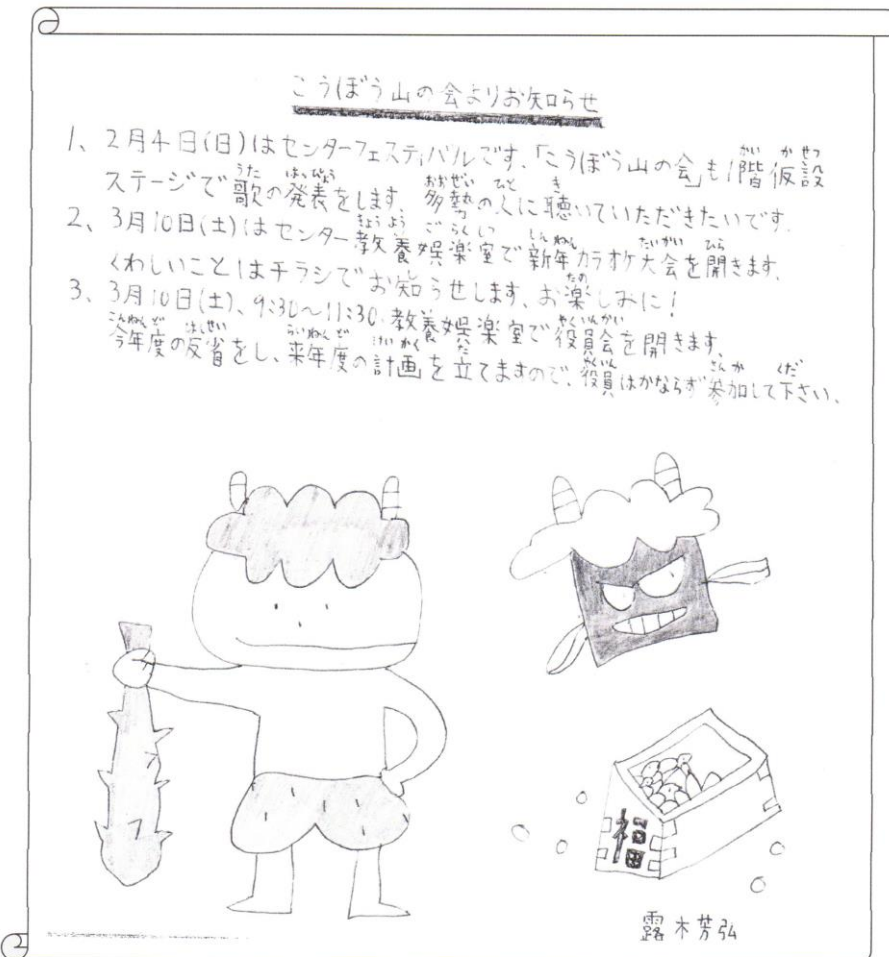 こうぼう山の会よりお知らせ
1、2月4日(日)はセンターフェスティバルです、「こうぼう山の会」も1階仮設
ステージで歌の発表をします、多勢の人に聴いていただきたいです、
2、3月10日(土)はセンター教養娯楽室で新年カラオケ大会を開きます、
くわしいことはチラシでお知らせします、お楽しみに!
3、3月10日(土)、9:30〜11:30、教養娯楽室で役員会を開きます、
今年度の反省をし、来年度の計画を立てますので、役員はかならず参加して下さい、
福
露木芳弘